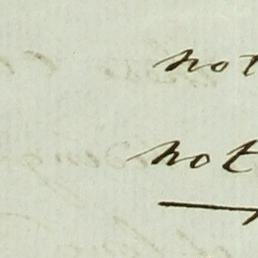 not
not